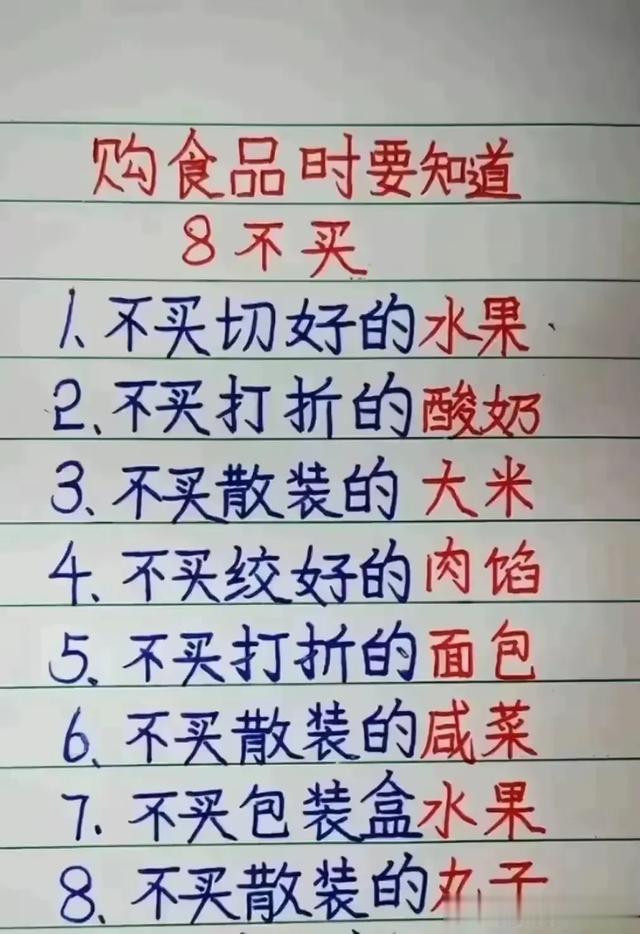 购食品时要知道
8不买
1、不买切好的水果、
2、不买打折的酸奶
3、不买散装的大米
4、不买绞好的肉馅
5、不买打折的面包
6、不买散装的咸菜
7、不买包装盒水果
8、不买散装的丸子